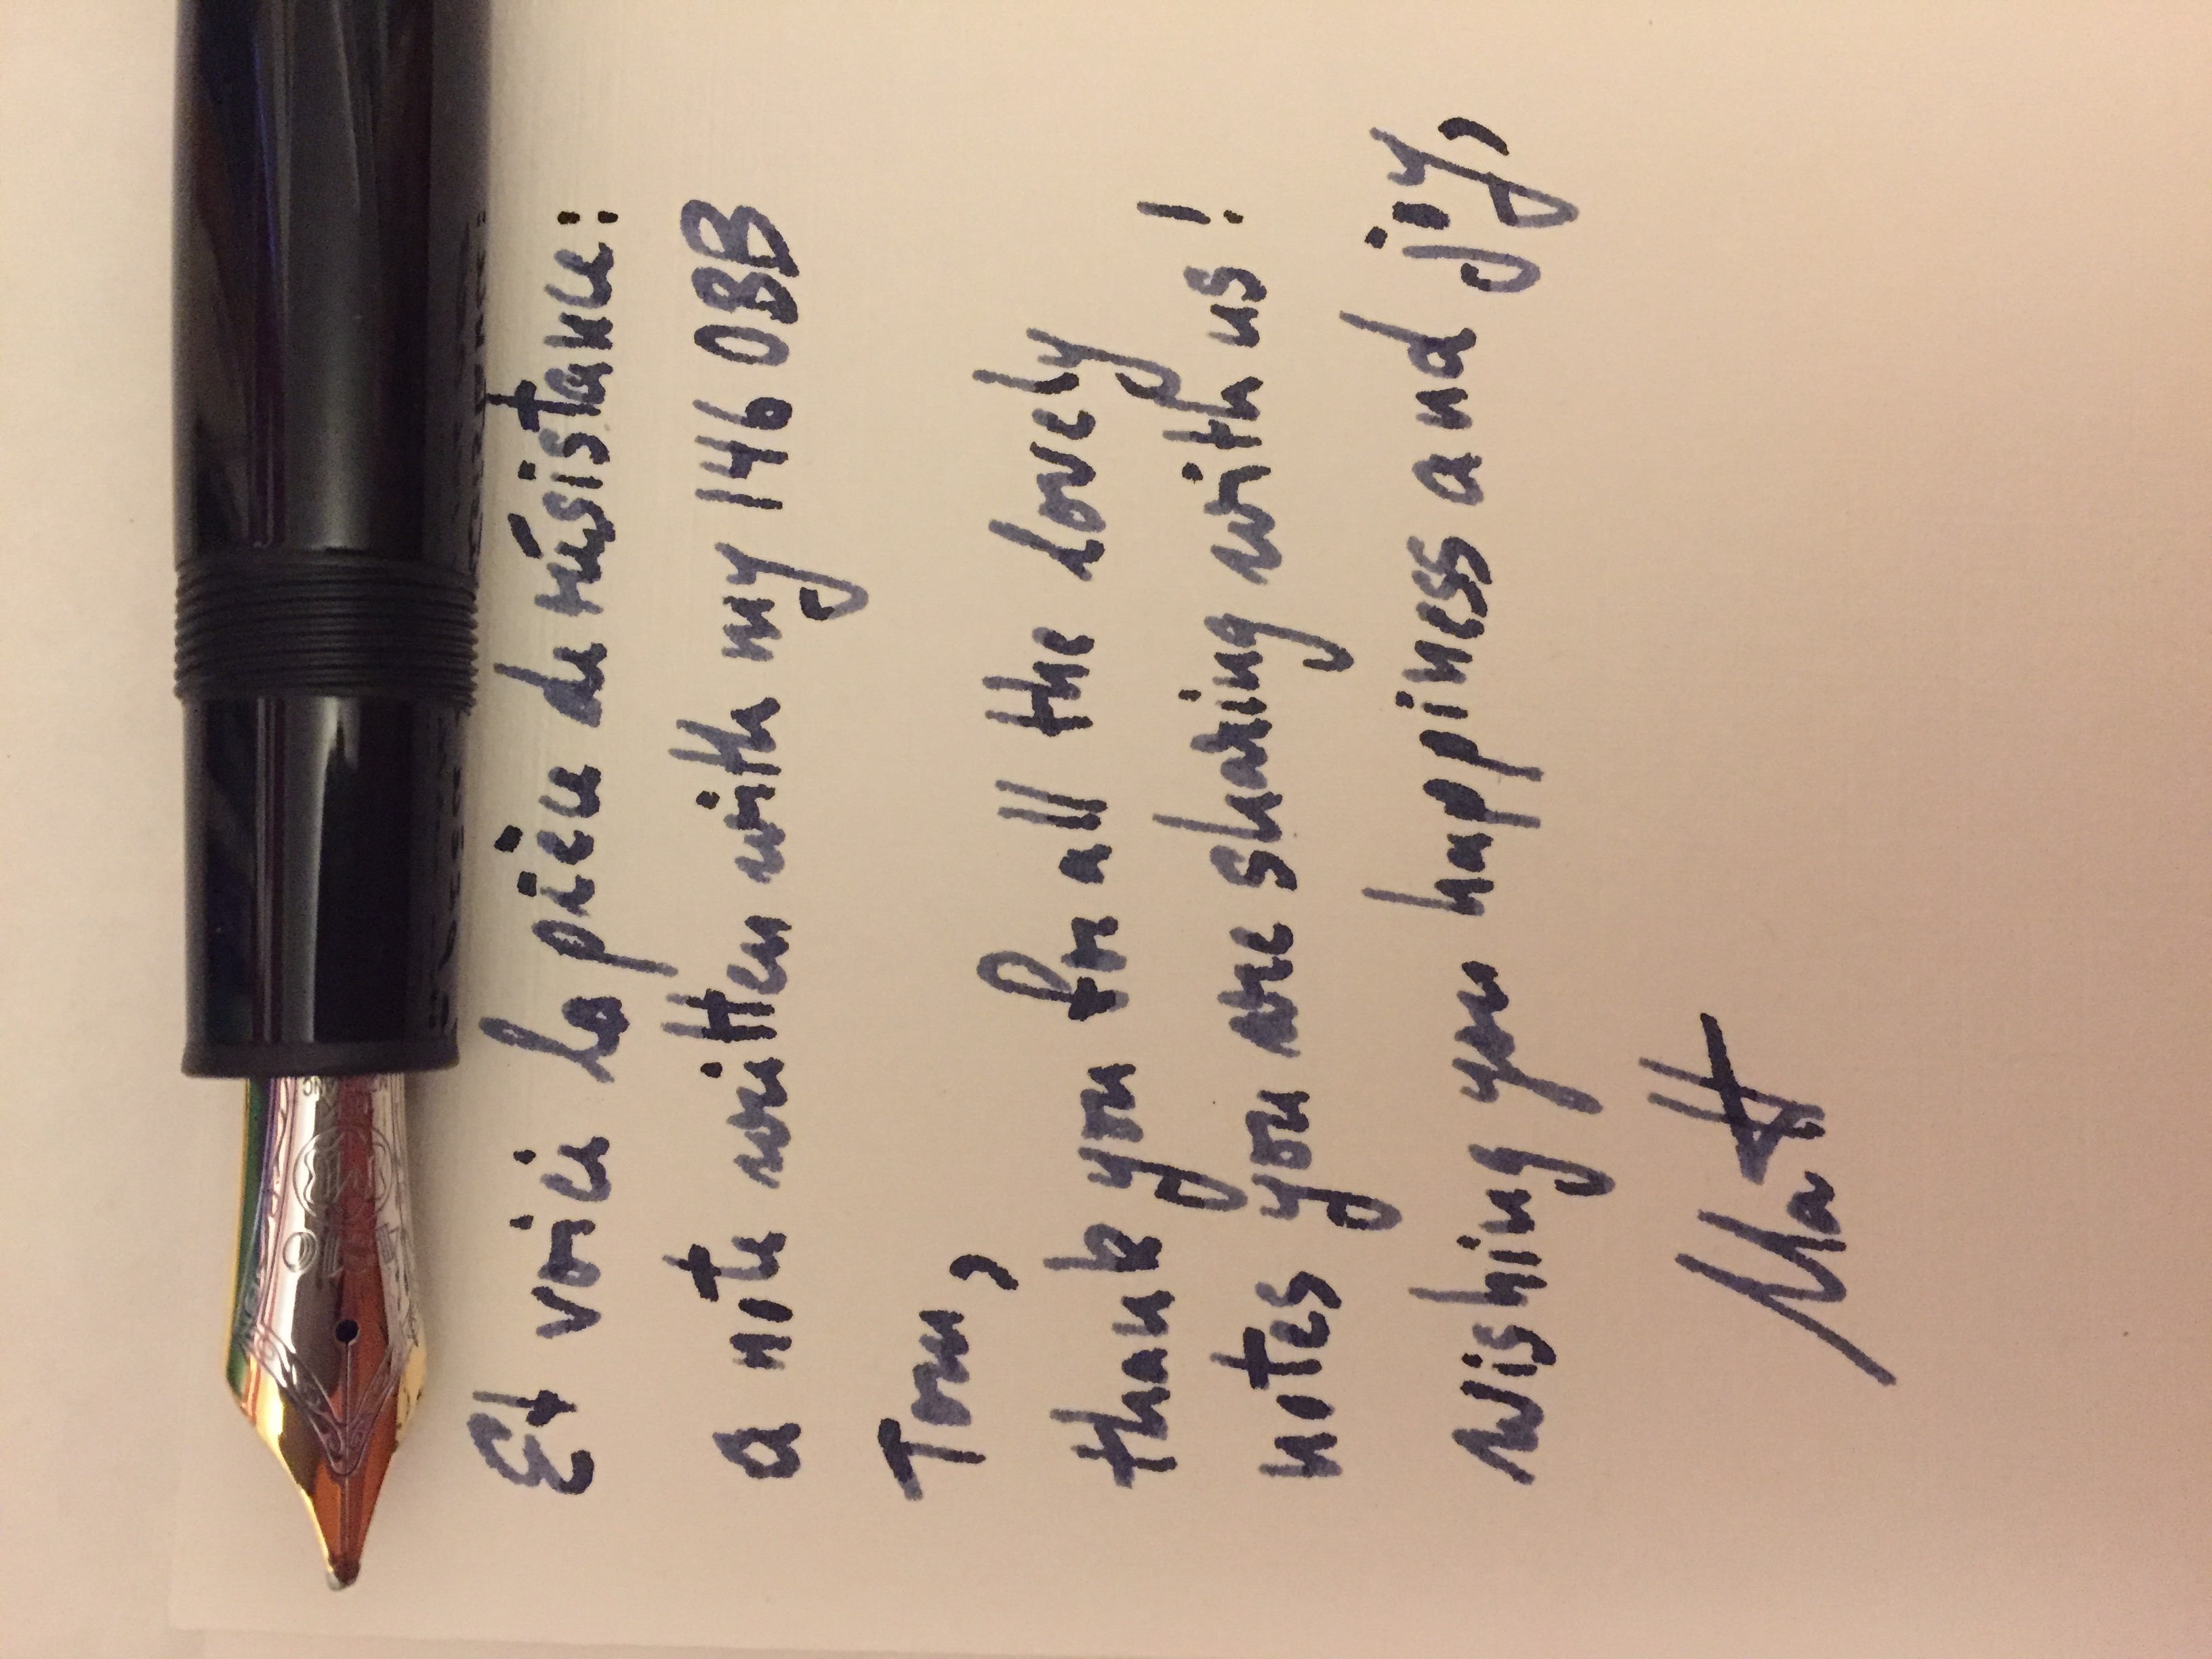 Et voici la pièce de résistance:
a note written with my 146 OBB
Tom,
thank you for all the lovely
notes you are sharing with us!
Wishing you happiness and joy,
Matt